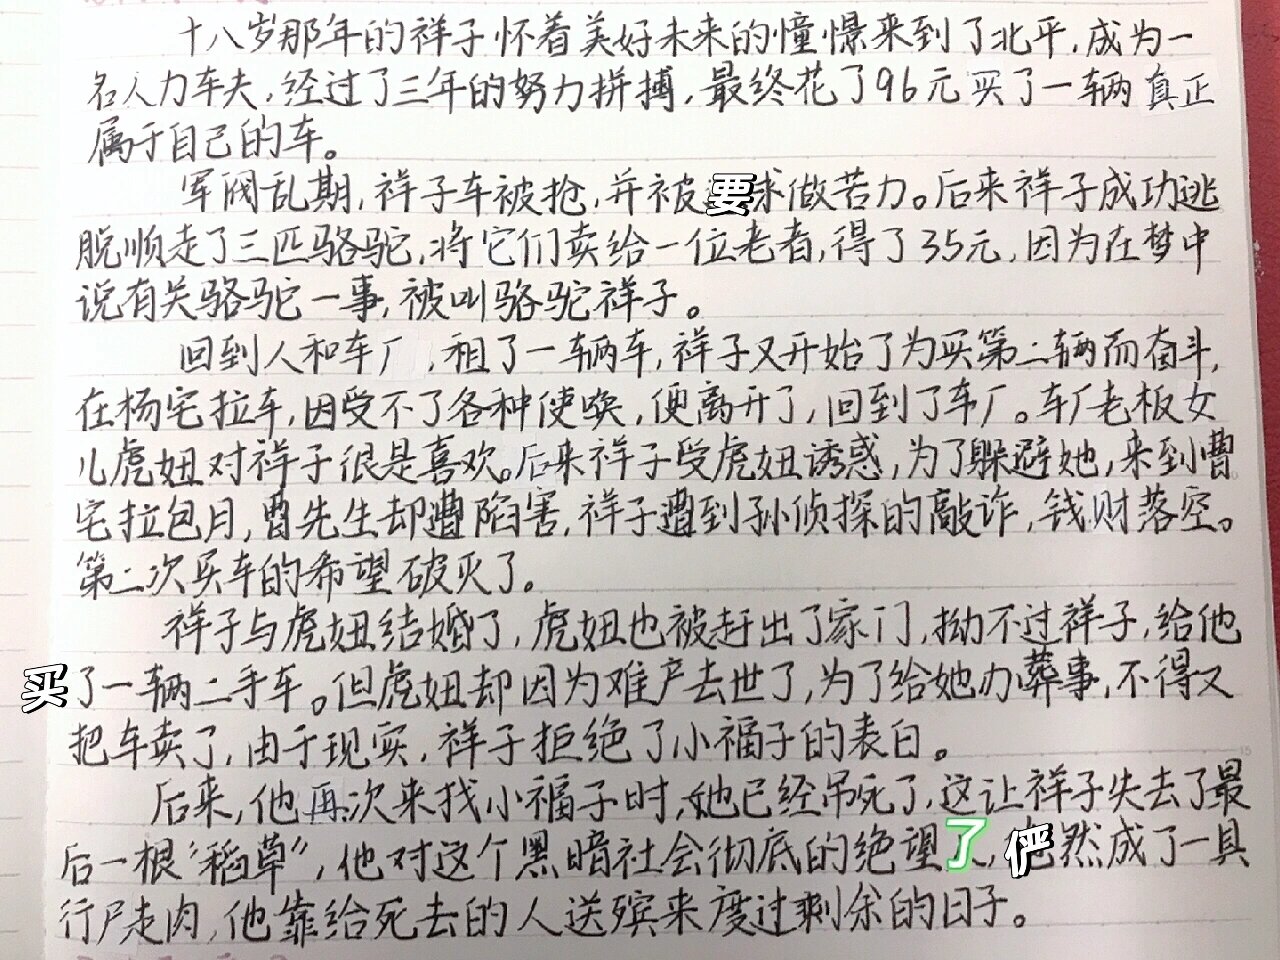 十八岁那年的祥子怀着美好未来的憧憬来到了北平,成为一
名人力车夫,经过了三年的努力拼搏,最终花了96元买了一辆真正
属于自己的车。
军阀乱期,祥子车被抢,并被要求做苦力。后来祥子成功逃
脱顺走了三匹骆驼,将它们卖给一位老者,得了35元,因为在梦中
说有关骆驼一事,被叫骆驼祥子。
回到人和车厂,租了一辆车,祥子又开始了为买第二辆而奋斗,
在杨宅拉车,因受不了各种使唤,便离开了,回到了车厂。车厂老板女
儿虎妞对祥子很是喜欢。后来祥子受虎妞诱惑,为了躲避她,来到曹
宅拉包月,曹先生却遭陷害,祥子遭到孙侦探的敲诈,钱财落空。
第二次买车的希望破灭了。
祥子与虎妞结婚了,虎妞也被赶出了家门,拗不过祥子,给他
买了一辆二手车。但虎妞却因为难产去世了,为了给她办葬事,不得又
把车卖了,由于现实,祥子拒绝了小福子的表白。
后来,他再次来找小福子时,她已经吊死了,这让祥子失去了最
后一根“稻草”,他对这个黑暗社会彻底的绝望了,俨然成了一具
行尸走肉,他靠给死去的人送殡来度过剩余的日子。